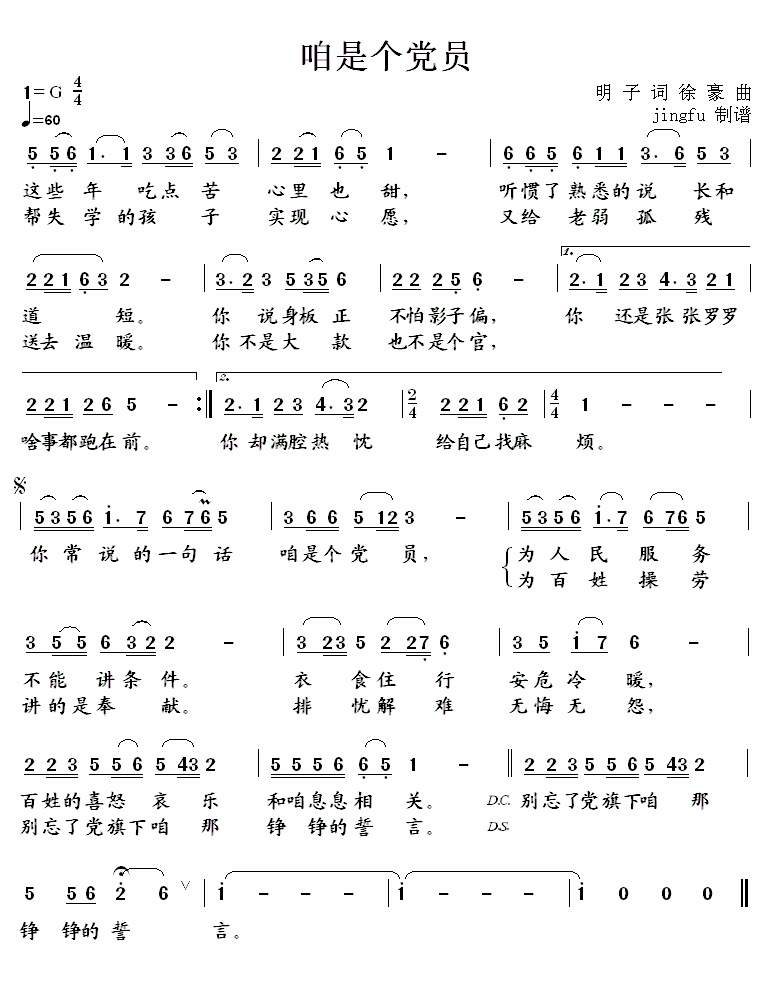 咱是个党员
1=G 4/4
明 子 词 徐 豪 曲
♩=60
jingfu 制谱
5 5 6 1· 1 3 3 6 5 3 | 2 2 1 6 5 1 - | 6 6 5 6 1 1 3· 6 5 3 |
这些 年 吃点 苦 心里 也 甜, 听惯了熟悉的说 长和
帮失 学 的孩 子 实现 心 愿, 又给 老弱 孤 残
1.
2 2 1 6 3 2 - | 3· 2 3 5 3 5 6 | 2 2 2 5 6 - | 2· 1 2 3 4· 3 2 1 |
道 短。 你 说身板 正 不怕影子偏, 你 还是张 张罗罗
送去 温 暖。 你不是大 款 也不是个官,
2.
2 2 1 2 6 5 - :|| 2· 1 2 3 4· 3 2 | 2/4 2 2 1 6 2 | 4/4 1 - - - |
啥事都跑在 前。 你 却满腔热 忱 给自己找麻 烦。
| 5 3 5 6 1· 7 6 7 6 5 | 3 6 6 5 1 2 3 - | 5 3 5 6 1· 7 6 7 6 5 |
你 常 说 的一句 话 咱是个 党 员, 为 人 民 服 务
为 百 姓 操 劳
3 5 5 6 3 2 2 - | 3 2 3 5 2 2 7 6 | 3 5 1 7 6 - |
不能 讲条 件。 衣 食住 行 安危 冷 暖,
讲的是奉 献。 排 忧解 难 无悔 无 怨,
2 2 3 5 5 6 5 4 3 2 | 5 5 5 6 6 5 1 - || 2 2 3 5 5 6 5 4 3 2 |
百姓的喜怒 哀 乐 和咱息息相 关。 D.C. 别忘了党旗下咱 那
别忘了党旗下咱 那 铮 铮的誓 言。 D.S.
5 5 6 2 6 ∨ | 1 - - - | 1 - - - | 1 0 0 0 ||
铮 铮的 誓 言。